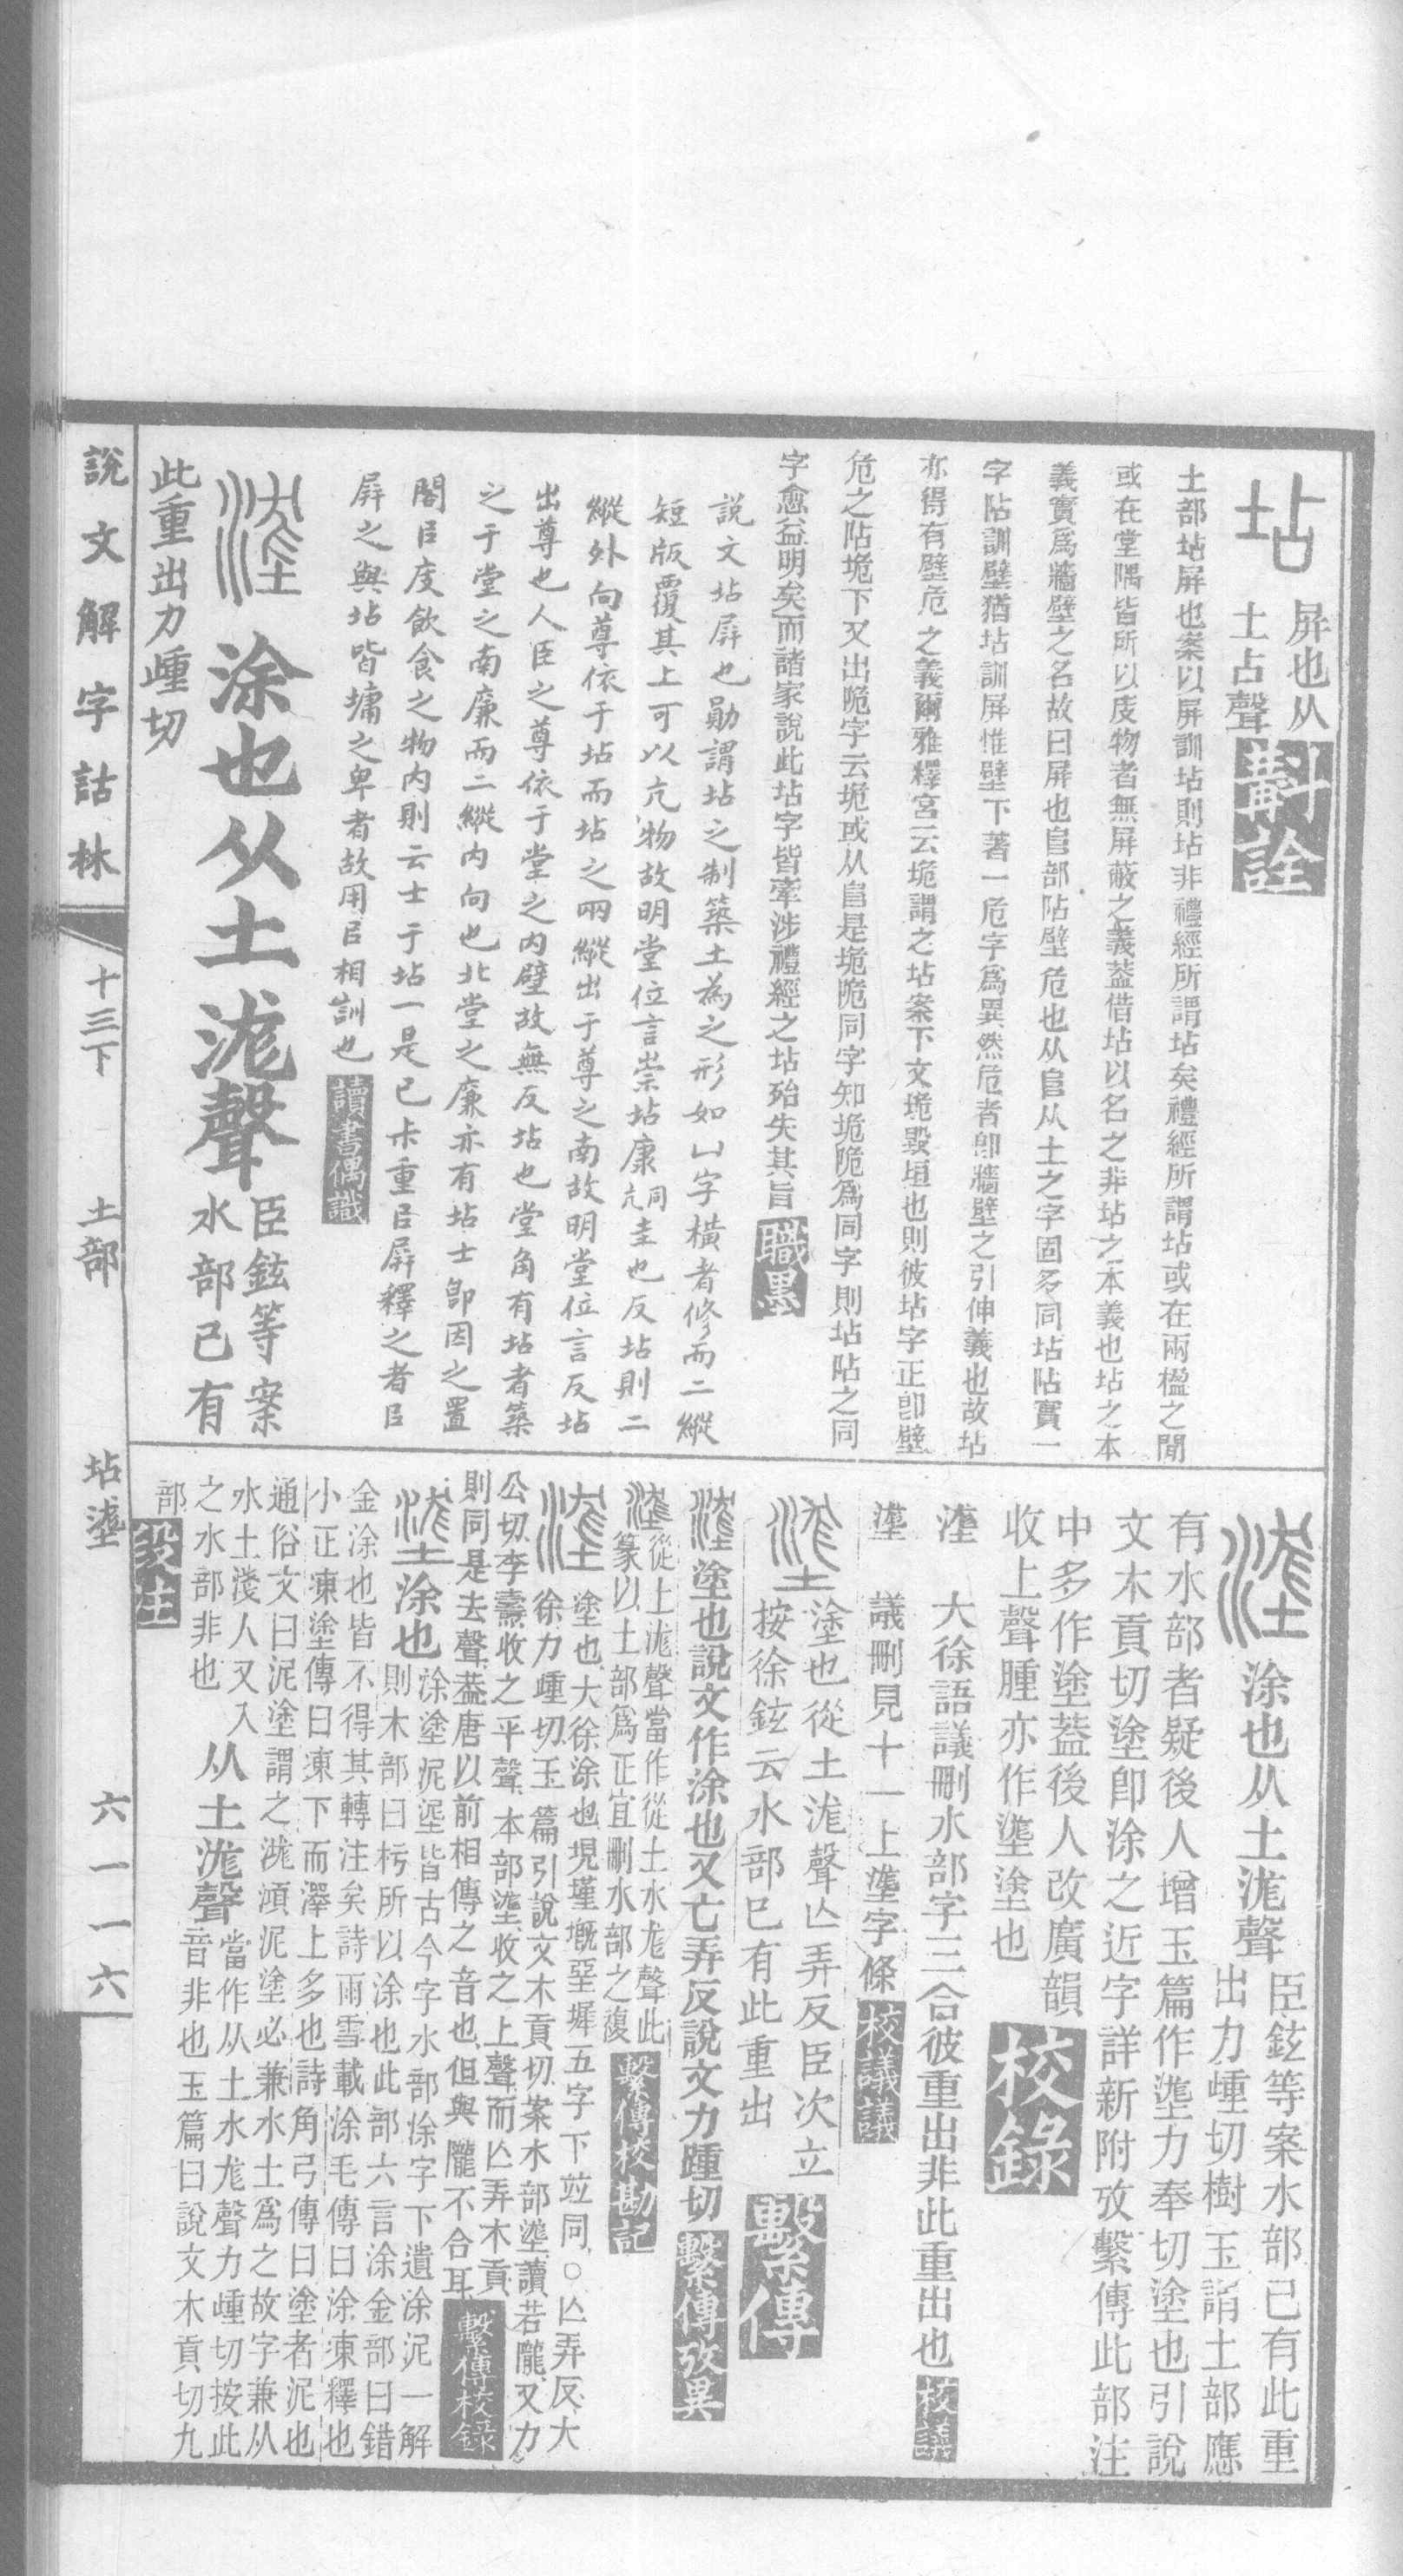 坫
屏也从
土占聲
斠詮
土部坫屏也案以屏訓坫則坫非禮經所謂坫矣禮經所謂坫或在兩楹之閒
或在堂隅皆所以庋物者無屏蔽之義葢借坫以名之非坫之本義也坫之本
義實爲牆壁之名故曰屏也𨸏部阽壁危也从𨸏从土之字固多同坫阽實一
字阽訓壁猶坫訓屏惟壁下著一危字爲異然危者卽牆壁之引伸義也故坫
亦得有壁危之義爾雅釋宮云垝謂之坫案下文垝毀垣也則彼坫字正卽壁
危之阽垝下又出陒字云垝或从𨸏是垝陒同字知垝陒爲同字則坫阽之同
字愈益明矣而諸家說此坫字皆牽涉禮經之坫殆失其旨
職墨
說文坫屏也勛謂坫之制築土為之形如凵字橫者修而二縱
短版覆其上可以亢物故明堂位言崇坫康同亢圭也反坫則二
縱外向尊依于坫而坫之兩縱出于尊之南故明堂位言反坫
出尊也人臣之尊依于堂之内壁故無反坫也堂角有坫者築
之于堂之南廉而二縱内向也北堂之廉亦有坫士卽因之置
閣㠯庋飲食之物内則云士于坫一是已尗重㠯屏釋之者㠯
屏之與坫皆墉之卑者故用㠯相訓也
讀書偶識
涂也从土浝聲
臣鉉等案
水部已有
此重出力歱切
涂也从土浝聲
臣鉉等案水部已有此重
出力歱切樹玉謂土部應
有水部者疑後人增玉篇作壟力奉切塗也引說
文木貢切塗卽涂之近字詳新附攷繫傳此部注
中多作塗葢後人改廣韻
收上聲腫亦作塗也
校錄
大徐語議刪水部字三合彼重出非此重出也
校議
議刪見十一上字條
校議議
塗也從土浝聲亾弄反臣次立
按徐鉉云水部已有此重出
繫傳
塗也說文作涂也又亡弄反說文力踵切
繫傳攷異
從上浝聲當作從土水尨聲此
篆以土部爲正宜刪水部之複
繫傳校勘記
塗也大徐涂也垷墐墍堊墀五字下竝同○亾弄反大
徐力歱切玉篇引說文木貢切案水部讀若隴又力
公切李燾收之平聲本部收之上聲而亾弄木貢
則同是去聲葢唐以前相傳之音也但與隴不合耳
繫傳校錄
涂也
涂塗泥埿皆古今字水部涂字下遺涂泥一解
則木部曰杇所以涂也此部六言涂金部曰錯
金涂也皆不得其轉注矣詩雨雪載涂毛傳曰涂凍釋也
小正凍塗傳曰凍下而澤上多也詩角弓傳曰塗者泥也
通俗文曰泥塗謂之浝澒泥塗必兼水土爲之故字兼从
水土淺人又入
之水部非也
从土浝聲
當作从土水尨聲力歱切按此
音非也玉篇曰說文木貢切九
部
段注
說文解字詁林
十三下
土部
坫
六一一六